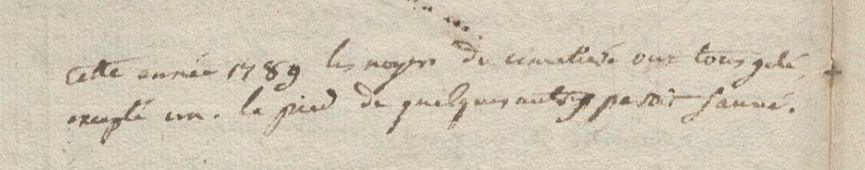 cette année 1789 les noyers du cimetiere ont tous gelé,
excepté un. le pied de quelques uns paroit sauvé.